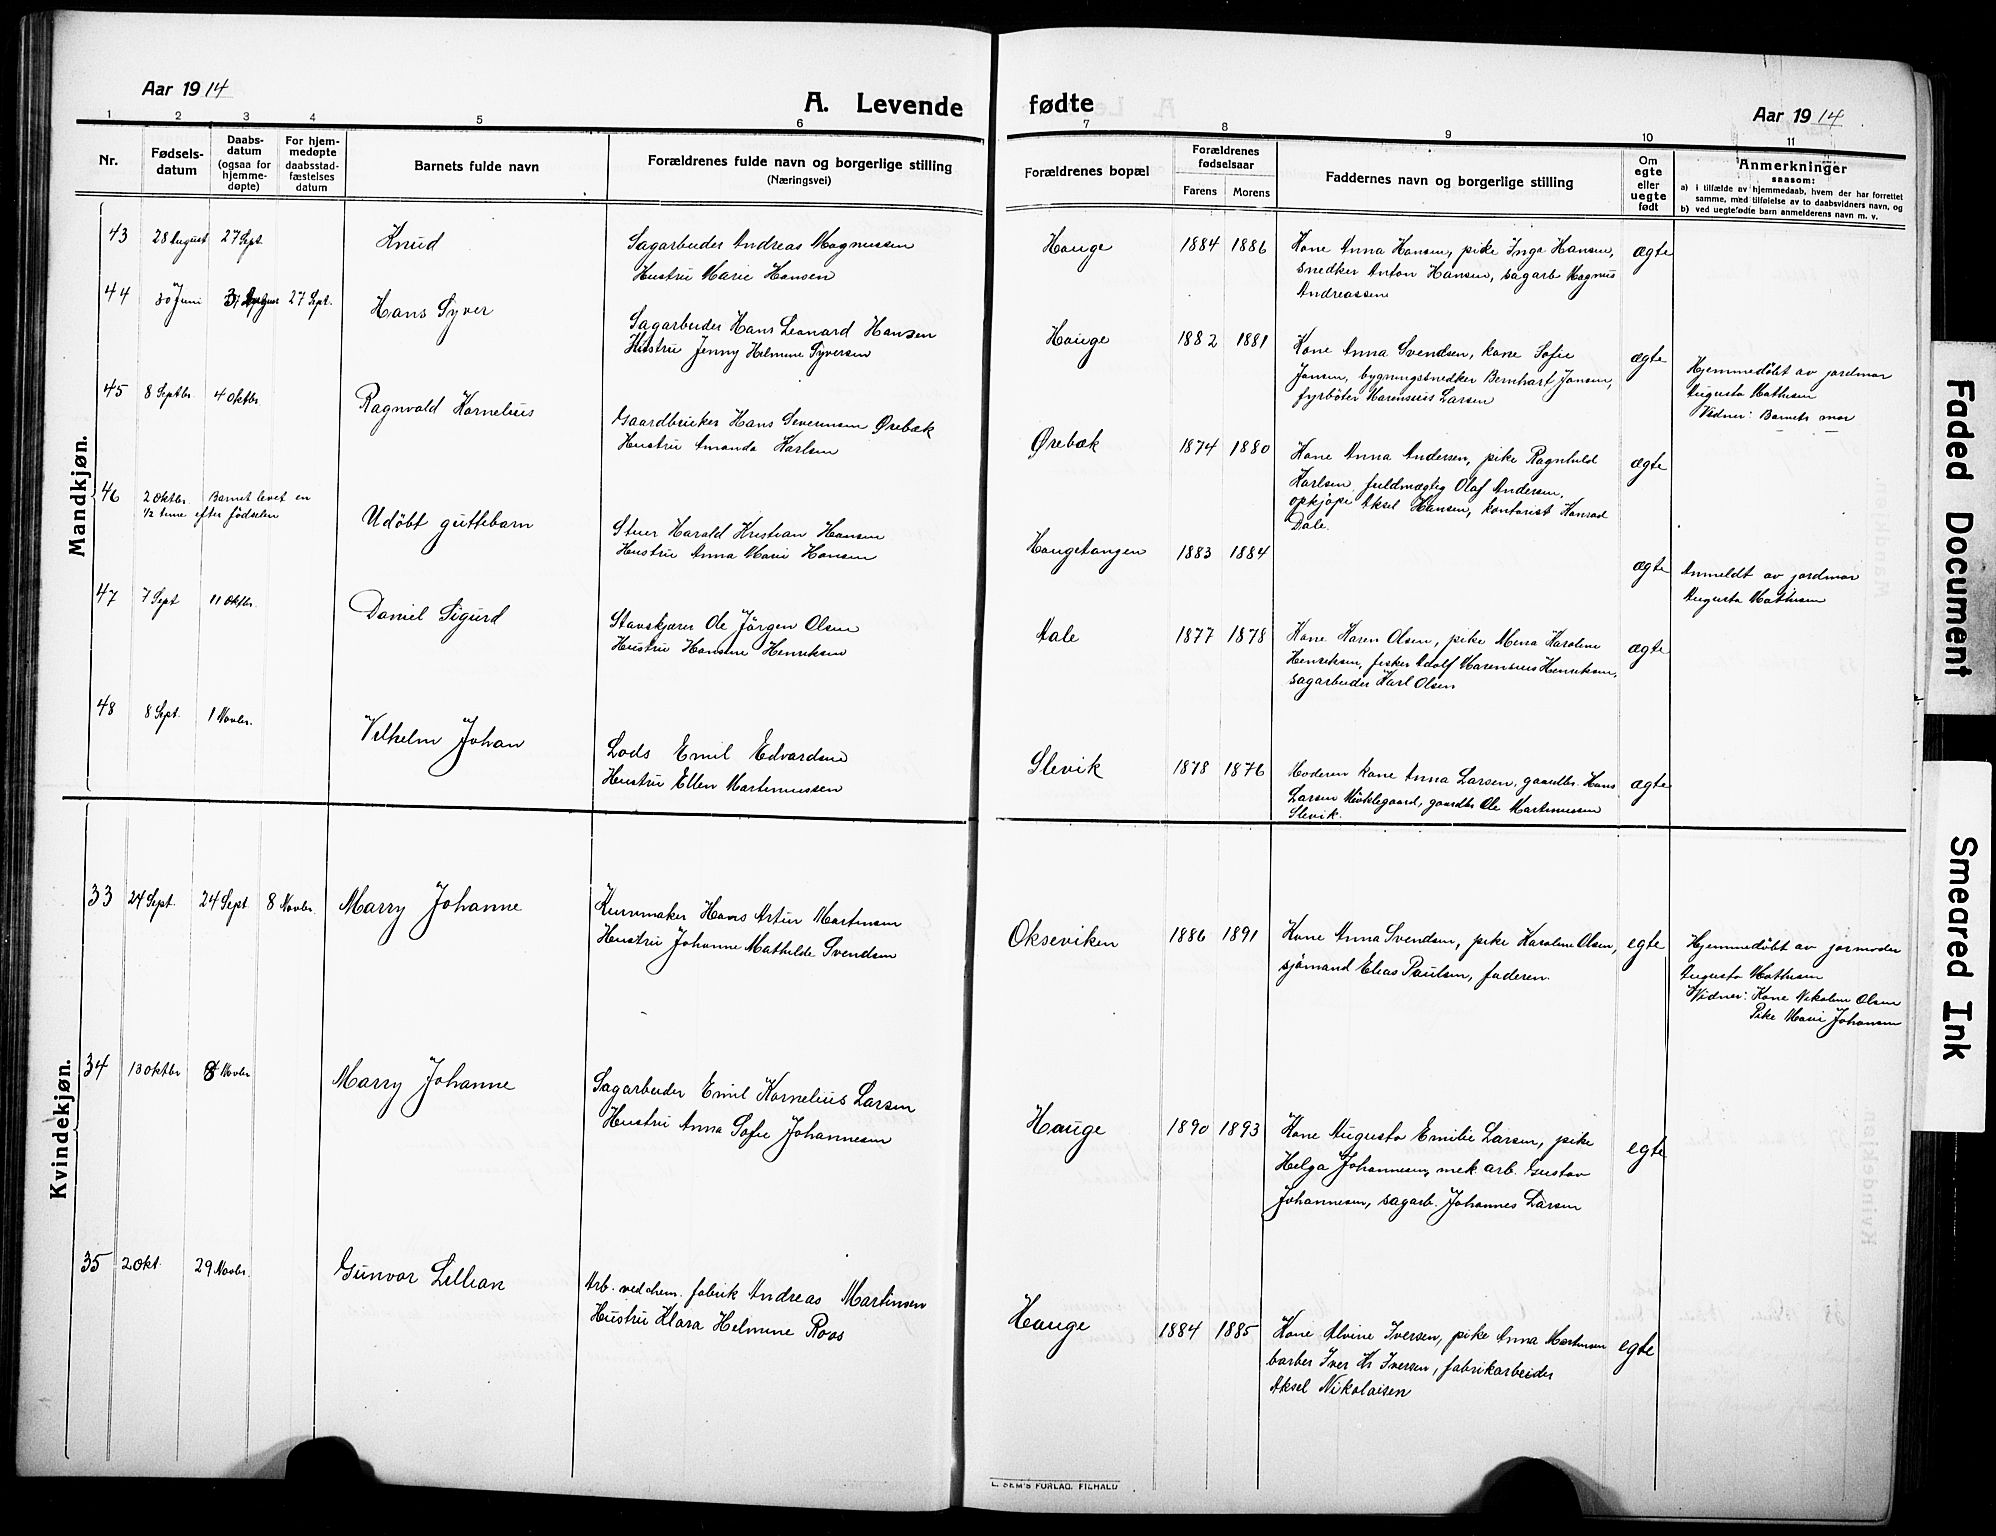 Aar 1914
A. Levende
1 2 3 4 5 6
Nr.
Fødsels-
datum
Daabs-
datum
(ogsaa for
hjemme-
døpte)
For hjem-
medøpte
daabsstad-
fæstelses
datum
Barnets fulde navn
Forældrenes fulde navn og borgerlige stilling
(Næringsvei)
Mandkjøn.
43 28 August 27 Sept. Knud
Sagarbeider Andreas Magnussen
Hustru Marie Hansen
44 30 Juni 31 August 27 Sept. Hans Syver
Sagarbeider Hans Leonard Hansen
Hustru Jenny Helmine Syversen
45 8 Septbr. 4 Oktbr. Ragnvald Kornelius
Gaardbruker Hans Severinsen Ørebæk
Hustru Amanda Karlsen
46 2 Oktbr. Barnet levet en
1/2 time efter födselen
Udöbt guttebarn
Stuer Harald Kristian Hansen
Hustru Anna Marie Hansen
47 7 Sept 11 Oktbr. Daniel Sigurd
Stavskjærer Ole Jörgen Olsen
Hustru Hansine Henriksen
48 8 Sept. 1 Novbr. Vilhelm Johan
Lods Emil Edvardsen
Hustru Ellen Martinussen
Kvindekjøn.
33 24 Sept. 24 Sept 8 Novbr. Marry Johanne
Kurvmaker Hans Artur Martinsen
Hustru Johanne Mathilde Svendsen
34 13 Oktbr 8 Novbr Marry Johanne
Sagarbeider Emil Kornelius Larsen
Hustru Anna Sofie Johannesen
35 2 Okt. 29 Novbr. Gunvor Lillian
Arb. ved chem. fabrik Andreas Martinsen
Hustru Klara Helmine Roos
fødte
Aar 1914
7 8 9 10 11
Forældrenes bopæl
Forældrenes
fødselsaar
Farens Morens
Faddernes navn og borgerlige stilling
Om
egte
eller
uegte
født
Anmerkninger
saasom:
a) i tilfælde av hjemmedaab, hvem der har forrettet
samme, med tilføielse av to daabsvidners navn, og
b) ved uegtefødte barn anmelderens navn m. v.
Hauge 1884 1886 Kone Anna Hansen, pike Inga Hansen, ægte
snedker Anton Hansen, sagarb Magnus
Andreassen
Hauge 1882 1881 Kone Anna Svendsen, kone Sofie ægte
Jansen, bygningssnedker Bernhart Jansen,
fyrböter Marensius Larsen
Hjemmedöbt av jordmor
Augusta Mathisen
Vidner: Barnets mor
Ørebæk 1874 1880 Kone Anna Andersen, pike Ragnhild ægte
Karlsen, fuldmægtig Olaf Andersen,
opkjöper Aksel Hansen, kontorist Konrad
Dale.
Haugetangen 1883 1884 ægte
Anmeldt av jordmor
Augusta Mathisen
Aale 1877 1878 Kone Karen Olsen, pike Mina Karoline ægte
Henriksen, fisker Adolf Marensius Henriksen,
sagarbeider Karl Olsen
Slevik 1878 1876 Moderen kone Anna Larsen, gaardbr. Hans ægte
Larsen Möklegaard, gaardbr Ole Martinussen
Slevik.
Okseviken 1886 1891 Kone Anna Svendsen, pike Karoline Olsen, egte
sjömand Elias Paulsen, faderen.
Hjemmedöbt av jormoder
Augusta Mathisen
Vidner: Kone Nikoline Olsen
Pike Marie Johansen
Hauge 1890 1893 Kone Augusta Emilie Larsen, pike egte
Helga Johannesen, mek. arb. Gustav
Johannesen, sagarb. Johannes Larsen
Hauge 1884 1885 Kone Alvine Iversen, pike Anna Martinsen egte
barber Iver Kr Iversen, fabrikarbeider
Aksel Nikolaisen
E. SEM'S FORLAG, FR.HALD
Faded Document
Smeared Ink